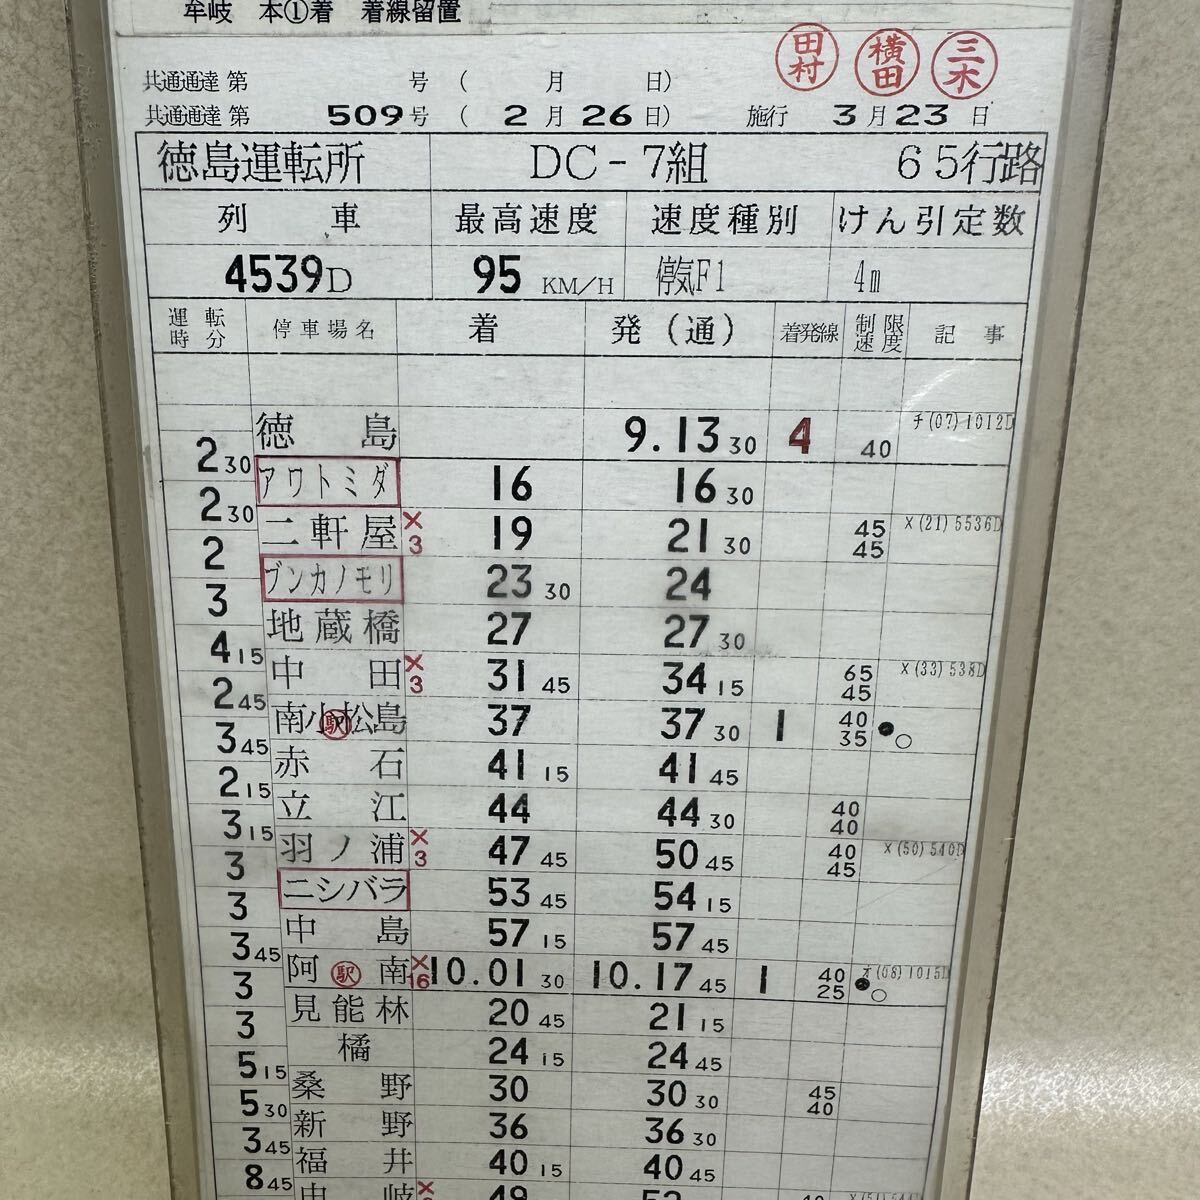 牟岐 本①着 着線留置
田村 横田 三木
共通通達 第 号 ( 月 日)
共通通達 第 509号 ( 2月26日) 施行 3月23日
徳島運転所 DC-7組 65行路
列車 最高速度 速度種別 けん引定数
4539D 95 KM/H 停気F1 4m
運転時分 停車場名 着 発(通) 着発線 制限速度 記事
徳島 9.13 30 4 40 チ(07)1012D
2 30
アワトミダ 16 16 30
2 30
二軒屋 ×3 19 21 30 45 45 ×(21)5536D
2
ブンカノモリ 23 30 24
3
地蔵橋 27 27 30
4 15
中田 ×3 31 45 34 15 65 45 ×(33)538D
2 45
南小松島 駅 37 37 30 1 40 35 ●○
3 45
赤石 41 15 41 45
2 15
立江 44 44 30 40 40
3 15
羽ノ浦 ×3 47 45 50 45 40 45 ×(50)540D
3
ニシバラ 53 45 54 15
3
中島 57 15 57 45
3 45
阿南 駅 ×16 10.01 30 10.17 45 1 40 25 オ(08)1015D ●○
3
見能林 20 45 21 15
3
橘 24 15 24 45
5 15
桑野 30 30 30 45 40
5 30
新野 36 36 30
3 45
福井 40 15 40 45
8 45
由岐 × 49 52 40